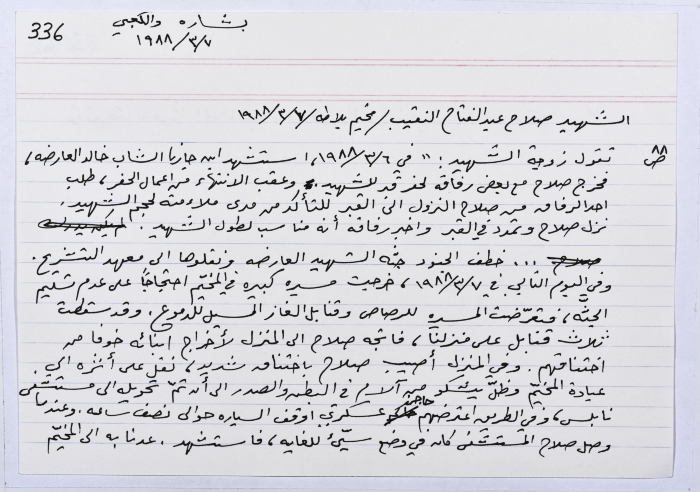 336
بشاره والكعبي
١٩٨٨/٣/٧
الشهيد صلاح عبد الفتاح النقيب / مخيم بلاطه / ١٩٨٨/٣/٧
ص ٨٨
تقول زوجة الشهيد: " في ١٩٨٨/٣/٦، استشهد ابن جارنا الشاب خالد العارضه،
فخرج صلاح مع بعض رفاقه لحفر قبر للشهيد. وعقب الانتهاء من اعمال الحفر، طلب
احد الرفاق من صلاح النزول الى القبر للتأكد من مدى ملاءمته لحجم الشهيد.
نزل صلاح وتمدد في القبر واخبر رفاقه أنه مناسب لطول الشهيد.
... خطف الجنود جثة الشهيد العارضه ونقلوها الى معهد التشريح.
وفي اليوم التالي في ١٩٨٨/٣/٧، خرجت مسيره كبيره في المخيّم احتجاجًا على عدم تسليم
الجثّه، فتعرّضت المسيره للرصاص وقنابل الغاز المسيل للدموع. وقد سقطت
ثلاث قنابل على منزلنا، فاتجه صلاح الى المنزل لأخراج ابنائه خوفا من
اختناقهم. وفي المنزل أصيب صلاح باختناق شديد، نقل على أثره الى
عيادة المخيّم وظلّ يشكو من آلام في البطن والصدر الى أن تمّ تحويله الى مستشفى
نابلس، وفي الطريق اعترضهم حاجز عسكري اوقف السياره حوالي نصف ساعه. وعندما
وصل صلاح المستشفى كان في وضع سيّئ للغايه، فاستشهد. عدنا به الى المخيّم